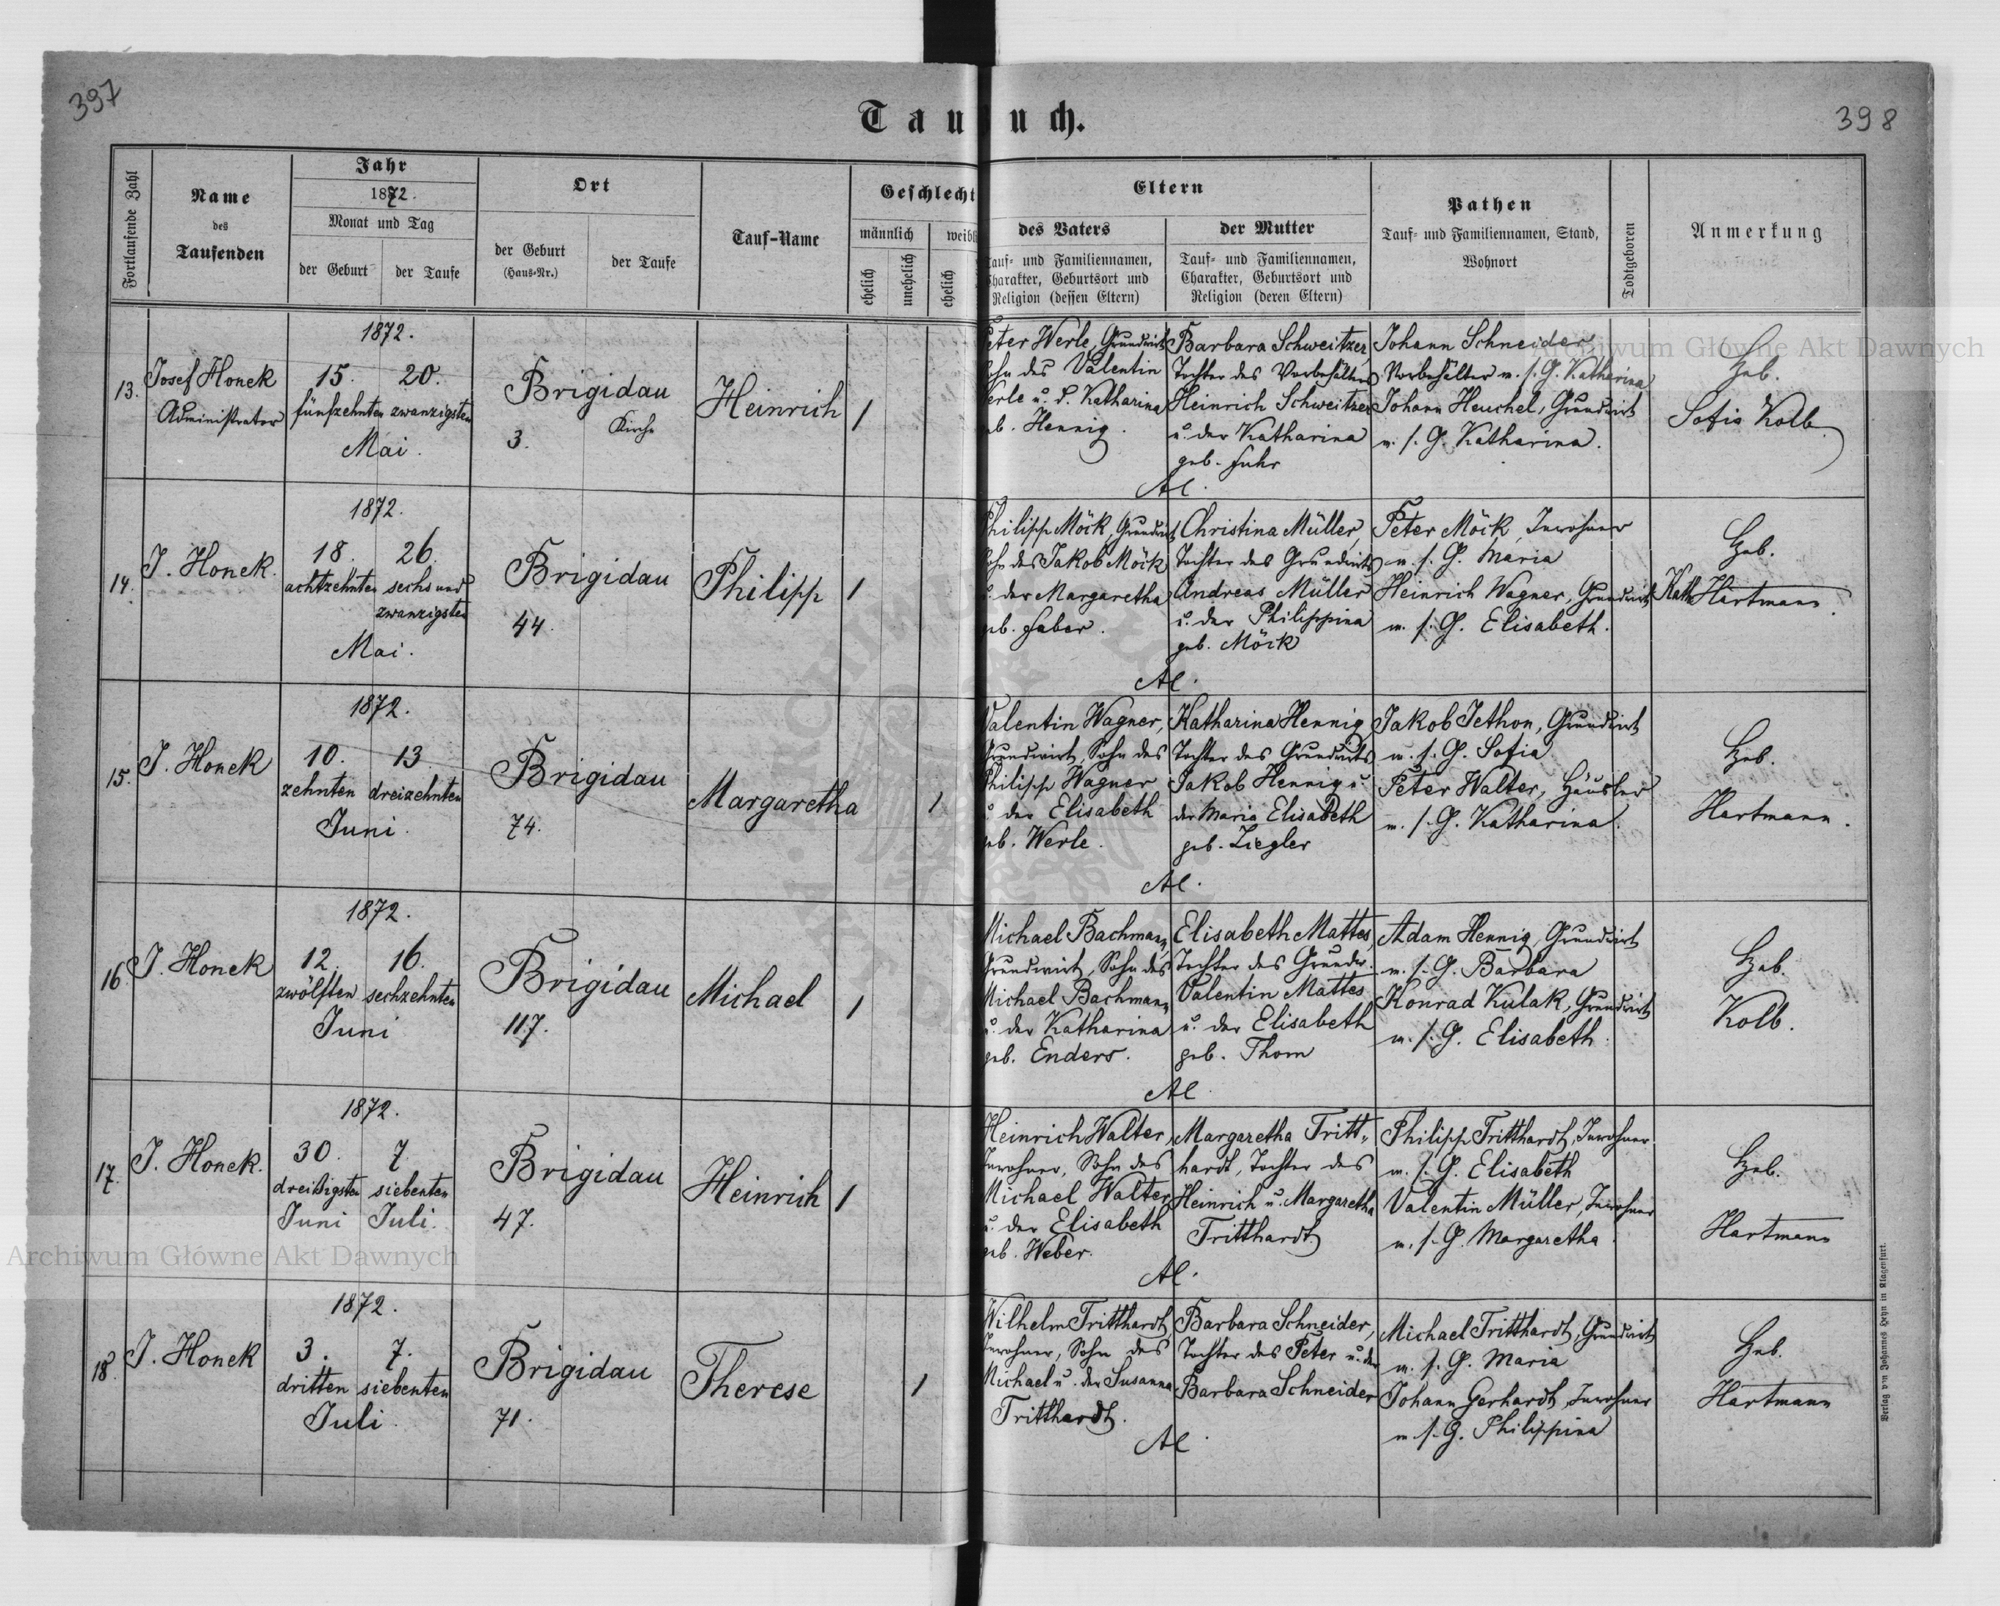 397
398
Tau uch.
Fortlaufende Zahl
Name
des
Taufenden
Jahr
1872.
Monat und Tag
der Geburt
der Taufe
Ort
der Geburt
(Haus-Nr.)
der Taufe
Tauf-Name
Geschlecht
männlich
weibl
ehelich
unehelich
ehelich
Eltern
des Vaters
Tauf- und Familiennamen,
Charakter, Geburtsort und
Religion (dessen Eltern)
der Mutter
Tauf- und Familiennamen,
Charakter, Geburtsort und
Religion (deren Eltern)
Pathen
Tauf- und Familiennamen, Stand,
Wohnort
Todtgeboren
Anmerkung
13.
Josef Honek
Administrator
1872.
15. 20.
fünfzehnten zwanzigsten
Mai.
Brigidau
3. Kirche
Heinrich
1
Peter Werle, Grundwirt
Sohn des Valentin
Werle u. d. Katharina
geb. Hennig.
Barbara Schweitzer
Tochter des Vorbehälters
Heinrich Schweitzer
u. der Katharina
geb. Fuhr
AC.
Johann Schneider
Vorbehälter m. s. G. Katharina
Johann Heuchel, Grundwirt
m. s. G. Katharina.
Heb.
Sofia Kolb
14.
J. Honek.
1872.
18. 26.
achtzehnten sechs und
zwanzigsten
Mai.
Brigidau
44.
Philipp
1
Philipp Möck, Grundwirt
Sohn des Jakob Möck
u. der Margaretha
geb. Faber.
Christina Müller,
Tochter des Grundwirts
Andreas Müller
u. der Philippina
geb. Möck
AC.
Peter Möck, Inwohner
m. s. G. Maria
Heinrich Wagner, Grundwirt
m. s. G. Elisabeth.
Heb.
Kath. Hartmann.
15.
J. Honek
1872.
10. 13.
zehnten dreizehnten
Juni.
Brigidau
74.
Margaretha
1
Valentin Wagner,
Grundwirt, Sohn des
Philipp Wagner
u. der Elisabeth
geb. Werle.
Katharina Hennig,
Tochter des Grundwirts
Jakob Hennig u.
der Maria Elisabeth
geb. Ziegler
AC.
Jakob Jethon, Grundwirt
m. s. G. Sofia
Peter Walter, Häusler
m. s. G. Katharina.
Heb.
Hartmann.
16.
J. Honek
1872.
12. 16.
zwölften sechzehnten
Juni
Brigidau
117.
Michael
1
Michael Bachmann,
Grundwirt, Sohn des
Michael Bachmann
u. der Katharina
geb. Enders.
Elisabeth Mattes,
Tochter des Grundw.
Valentin Mattes
u. der Elisabeth
geb. Thom
AC.
Adam Hennig, Grundwirt
m. s. G. Barbara
Konrad Kulak, Grundwirt
m. s. G. Elisabeth.
Heb.
Kolb.
17.
J. Honek.
1872.
30. 7.
dreißigsten siebenten
Juni Juli.
Brigidau
47.
Heinrich
1
Heinrich Walter,
Inwohner, Sohn des
Michael Walter
u. der Elisabeth
geb. Weber.
Margaretha Tritt-
hardt, Tochter des
Heinrich u. Margaretha
Tritthardt
AC.
Philipp Tritthardt, Inwohner
m. s. G. Elisabeth
Valentin Müller, Inwohner
m. s. G. Margaretha.
Heb.
Hartmann
18.
J. Honek
1872.
3. 7.
dritten siebenten
Juli.
Brigidau
71.
Therese
1
Wilhelm Tritthardt
Inwohner, Sohn des
Michael u. der Susanna
Tritthardt.
Barbara Schneider,
Tochter des Peter u. der
Barbara Schneider
AC.
Michael Tritthardt, Grundwirt
m. s. G. Maria
Johann Gerhardt, Inwohner
m. s. G. Philippina
Heb.
Hartmann
Verlag von Johannes Heyn in Klagenfurt.
Archiwum Główne Akt Dawnych
Archiwum Główne Akt Dawnych